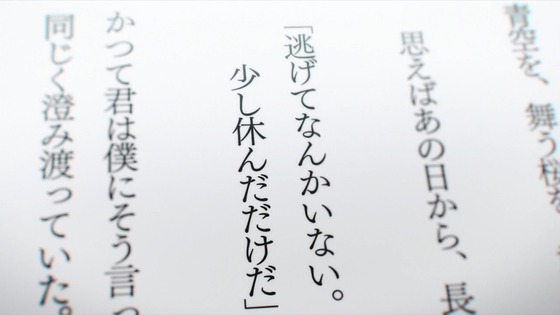 青空を、舞う桜を
思えばあの日から、長
「逃げてなんかいない。
少し休んだだけだ」
かつて君は僕にそう言っ
同じく澄み渡っていた。